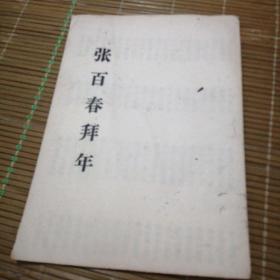 张百春拜年